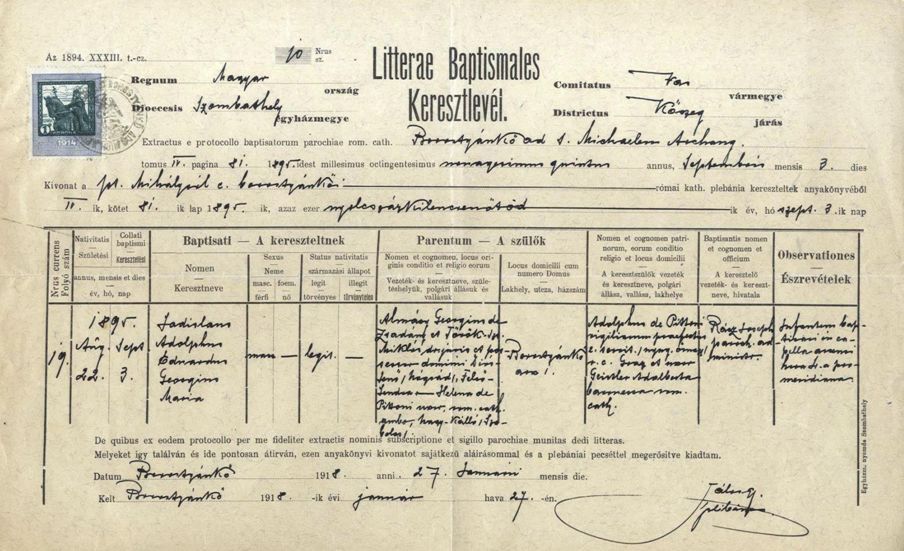 Az 1894. XXXIII. t.-cz.
10 Nrus sz.
Litterae Baptismales
Keresztlevél.
Regnum Magyar ország
Dioecesis Szombathely egyházmegye
Comitatus Vas vármegye
Districtus Kőszeg járás
1914
Extractus e protocollo baptisatorum parochiae rom. cath. Borostyánkő ad S. Michaelem Archang.
tomus IV. pagina 81. 1895. idest millesimus octingentesimus nonagesimus quintus annus, Septembris mensis 3. dies
Kivonat a Borostyánkői római kath. plebánia kereszteltek anyakönyvéből
IV. ik, kötet 81. ik lap 1895. ik, azaz ezer nyolcszázkilencvenötöd ik év, hó szept. 3. ik nap
Nrus currens
Folyó szám
Nativitatis
Születési
Collati baptismi
Keresztelési
annus, mensis et dies
év, hó, nap
Baptisati — A kereszteltnek
Nomen
Keresztneve
Sexus
Neme
masc. foem.
férfi nő
Status nativitatis
származási állapot
legit. illegit.
törvényes törvénytelen
Parentum — A szülők
Nomen et cognomen, locus originis conditio et religio eorum
Vezeték- és keresztneve, születéshelyük, polgári állásuk és vallásuk
Locus domicilii cum numero Domus
Lakhely, utcza, házszám
Nomen et cognomen patrinorum, eorum conditio religio et locus domicilii
A keresztszülők vezeték és keresztneve, polgári állása, vallása, lakhelye
Baptisantis nomen et cognomen et officium
A keresztelő vezeték- és keresztneve, hivatala
Observationes
Észrevételek
19.
1895.
Aug. Sept
22. 3.
Ladislaus
Adolphus
Eduardus
Georgius
Maria
mas. —
legit. —
Almásy Georgius de
Zsadány et Török-Sz.
Miklós,
Helena de
Pittoni
Borostyánkő
arx 1.
Adolphus de Pittoni
Geistler Adalberta
baronessa rom.
cath.
Rácz Joseph
paroch. ad
ministr.
Infantem bap
tisavi in ca
pella arcensi
hora 4. a po
meridiana.
De quibus ex eodem protocollo per me fideliter extractis nominis subscriptione et sigillo parochiae munitas dedi litteras.
Melyeket így találván és ide pontosan átirván, ezen anyakönyvi kivonatot sajátkezű aláirásommal és a plebániai pecséttel megerősitve kiadtam.
Datum Borostyánkő 1918. anni 27 Januarii mensis die.
Kelt Borostyánkő 1918. -ik évi január hava 27. -én.
plébános
Egyházm. nyomda Szombathely